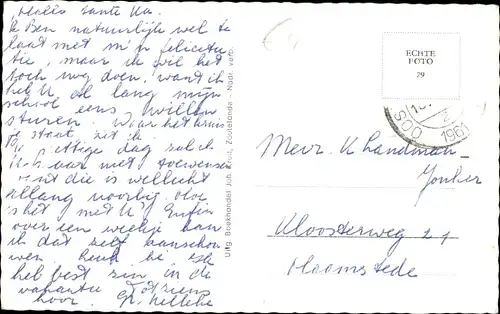 Hallo Tante Ka.
Ik Ben natuurlijk wel te
laat met m'n felicita-
tie, maar ik wil het
toch nog doen, want ik
heb U al lang mijn
school eens willen
sturen. Waar het kruis
staat zit ik
Prettige dag zal ik
U maar met toewensen
want die is wellicht
allang voorbij. Hoe
is het met U? Enfin
over een weekje kan
ik dat zelf aanschou-
wen. Leuk hè. Ik
heb best zin in de
vakantie Tot ziens
hoor. Gr. Nelleke
Uitg. Boekhandel Joh. Kout, Zoutelande - Nadr. verb.
ECHTE
FOTO
79
1961
Mevr. K Landman-
Jonker
Kloosterweg 21
Haamstede